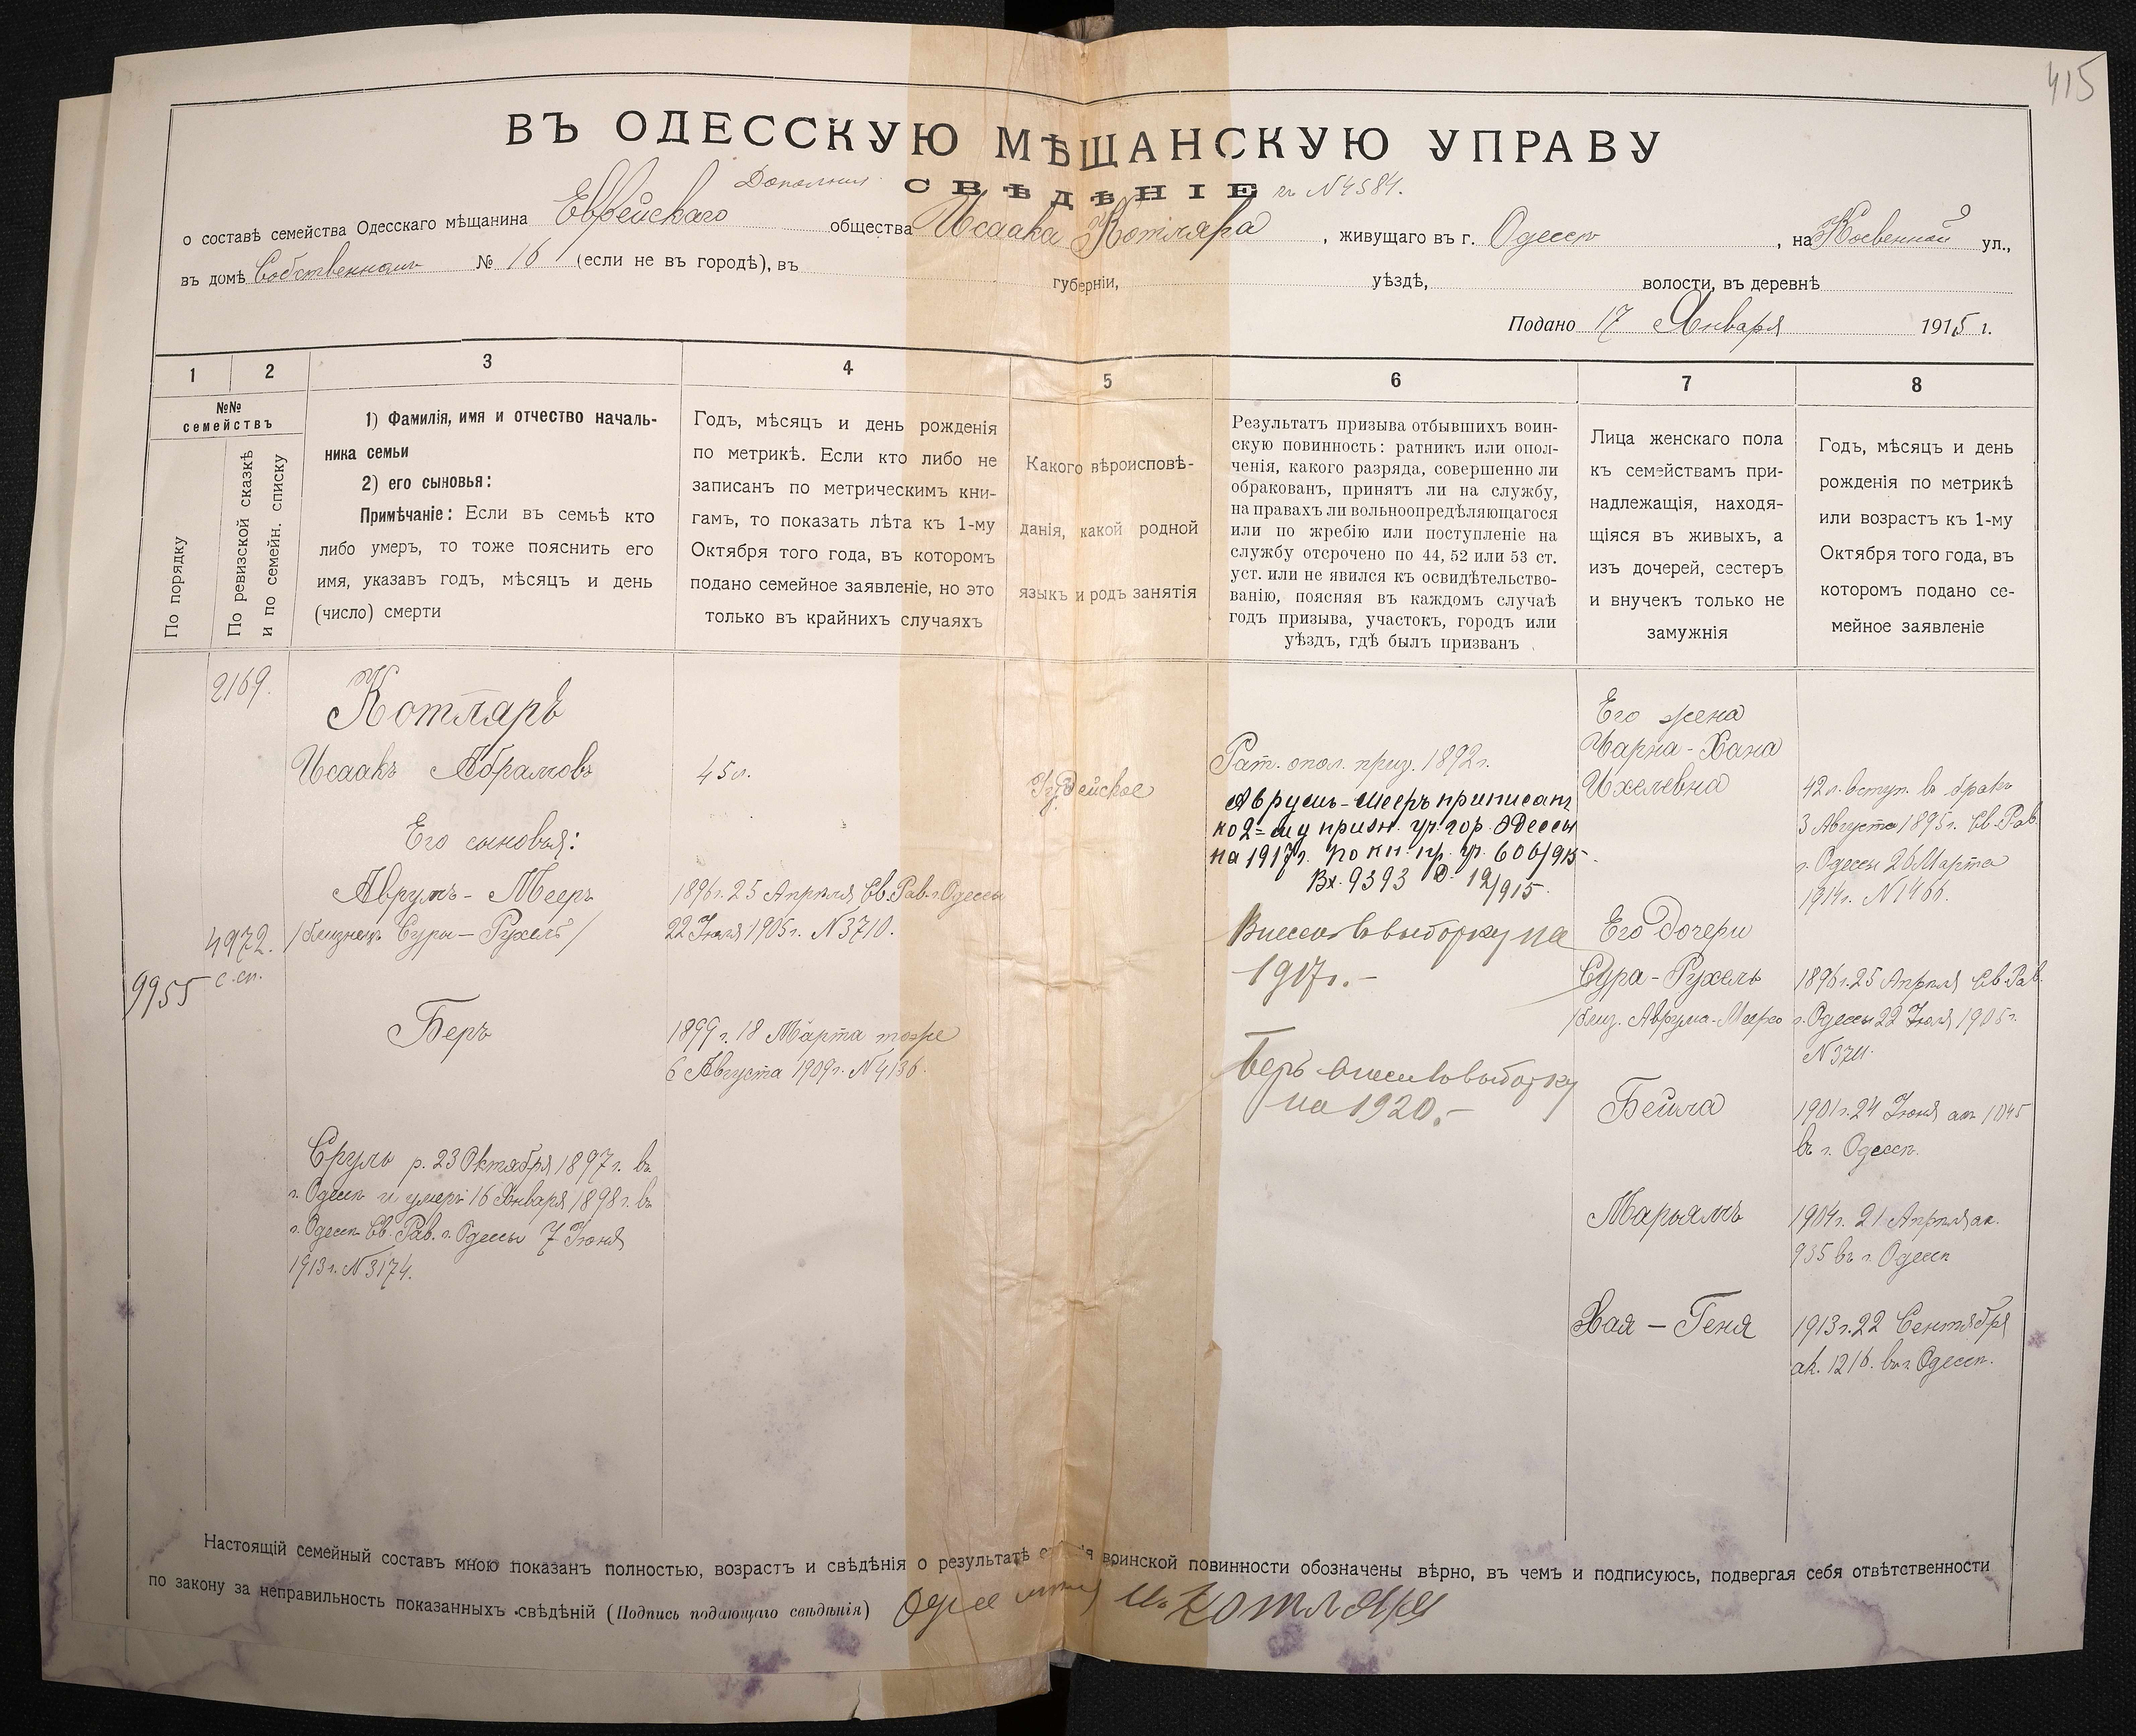 415
ВЪ ОДЕССКУЮ МѢЩАНСКУЮ УПРАВУ
Дополнит.
СВѢДѢНІЕ къ №4584.
о составѣ семейства Одесскаго мѣщанина Еврейскаго общества Исаака Котляра, живущаго въ г. Одессѣ, на Косвенной ул.,
въ домѣ Собственномъ № 16 (если не въ городѣ), въ губерніи, уѣздѣ, волости, въ деревнѣ
Подано 17 Января 1915 г.
1 2 3 4 5 6 7 8
№№ семействъ
По порядку
По ревизской сказкѣ и по семейн. списку
1) Фамилія, имя и отчество началь-
ника семьи
2) его сыновья:
Примѣчаніе: Если въ семьѣ кто
либо умеръ, то тоже пояснить его
имя, указавъ годъ, мѣсяцъ и день
(число) смерти
Годъ, мѣсяцъ и день рожденія
по метрикѣ. Если кто либо не
записанъ по метрическимъ кни-
гамъ, то показать лѣта къ 1-му
Октября того года, въ которомъ
подано семейное заявленіе, но это
только въ крайнихъ случаяхъ
Какого вѣроисповѣ-
данія, какой родной
языкъ и родъ занятія
Результатъ призыва отбывшихъ воин-
скую повинность: ратникъ или опол-
ченія, какого разряда, совершенно ли
обракованъ, принятъ ли на службу,
на правахъ ли вольноопредѣляющагося
или по жребію или поступленіе на
службу отсрочено по 44, 52 или 53 ст.
уст. или не явился къ освидѣтельство-
ванію, поясняя въ каждомъ случаѣ
годъ призыва, участокъ, городъ или
уѣздъ, гдѣ былъ призванъ
Лица женскаго пола
къ семействамъ при-
надлежащія, находя-
щіяся въ живыхъ, а
изъ дочерей, сестеръ
и внучекъ только не
замужнія
Годъ, мѣсяцъ и день
рожденія по метрикѣ
или возрастъ къ 1-му
Октября того года, въ
которомъ подано се-
мейное заявленіе
2169.
4972.
с. сп.
9955
Котляръ
Исаакъ Абрамовъ
Его сыновья:
Аврумъ-Мееръ
/близнецъ Суры-Рухель/
Беръ
Сруль р. 23 Октября 1897 г. въ
г. Одессѣ и умеръ 16 Января 1898 г. въ
г. Одессѣ Св. Рав. г. Одессы 7 Іюня
1913 г. №3174.
45 л.
1896 г. 25 Апрѣля Св. Рав. г. Одессы
22 Іюля 1905 г. №3710.
1899 г. 18 Марта тоже
6 Августа 1909 г. №4136.
Іудейское
Рат. опол. приз. 1892 г.
Аврумъ-Мееръ приписанъ
ко 2=му призн. уч. гор. Одессы
на 1917 г. по кн. пр. уч. 606/915.
Вх. 9393 О. 12/915.
Внесенъ въ выборку на
1917 г.-
Беръ внесенъ въ выборку
на 1920.-
Его жена
Чарна-Хана
Ихелевна
Его дочери
Сура-Рухель
/близ. Аврума-Меера
Бейла
Марьямъ
Хая-Геня
42 л. вступ. въ бракъ
3 Августа 1895 г. Св. Рав.
г. Одессы 26 Марта
1914 г. №1466.
1896 г. 25 Апрѣля Св. Рав.
г. Одессы 22 Іюля 1905 г.
№3711.
1901 г. 24 Іюня ак. 1045
въ г. Одессѣ.
1904 г. 21 Апрѣля ак.
935 въ г. Одессѣ
1913 г. 22 Сентября
ак. 1216. въ г. Одессѣ.
Настоящій семейный составъ мною показанъ полностью, возрастъ и свѣдѣнія о результатѣ воинской повинности обозначены вѣрно, въ чемъ и подписуюсь, подвергая себя отвѣтственности
по закону за неправильность показанныхъ свѣдѣній (Подпись подающаго свѣдѣнія) И. Котляръ